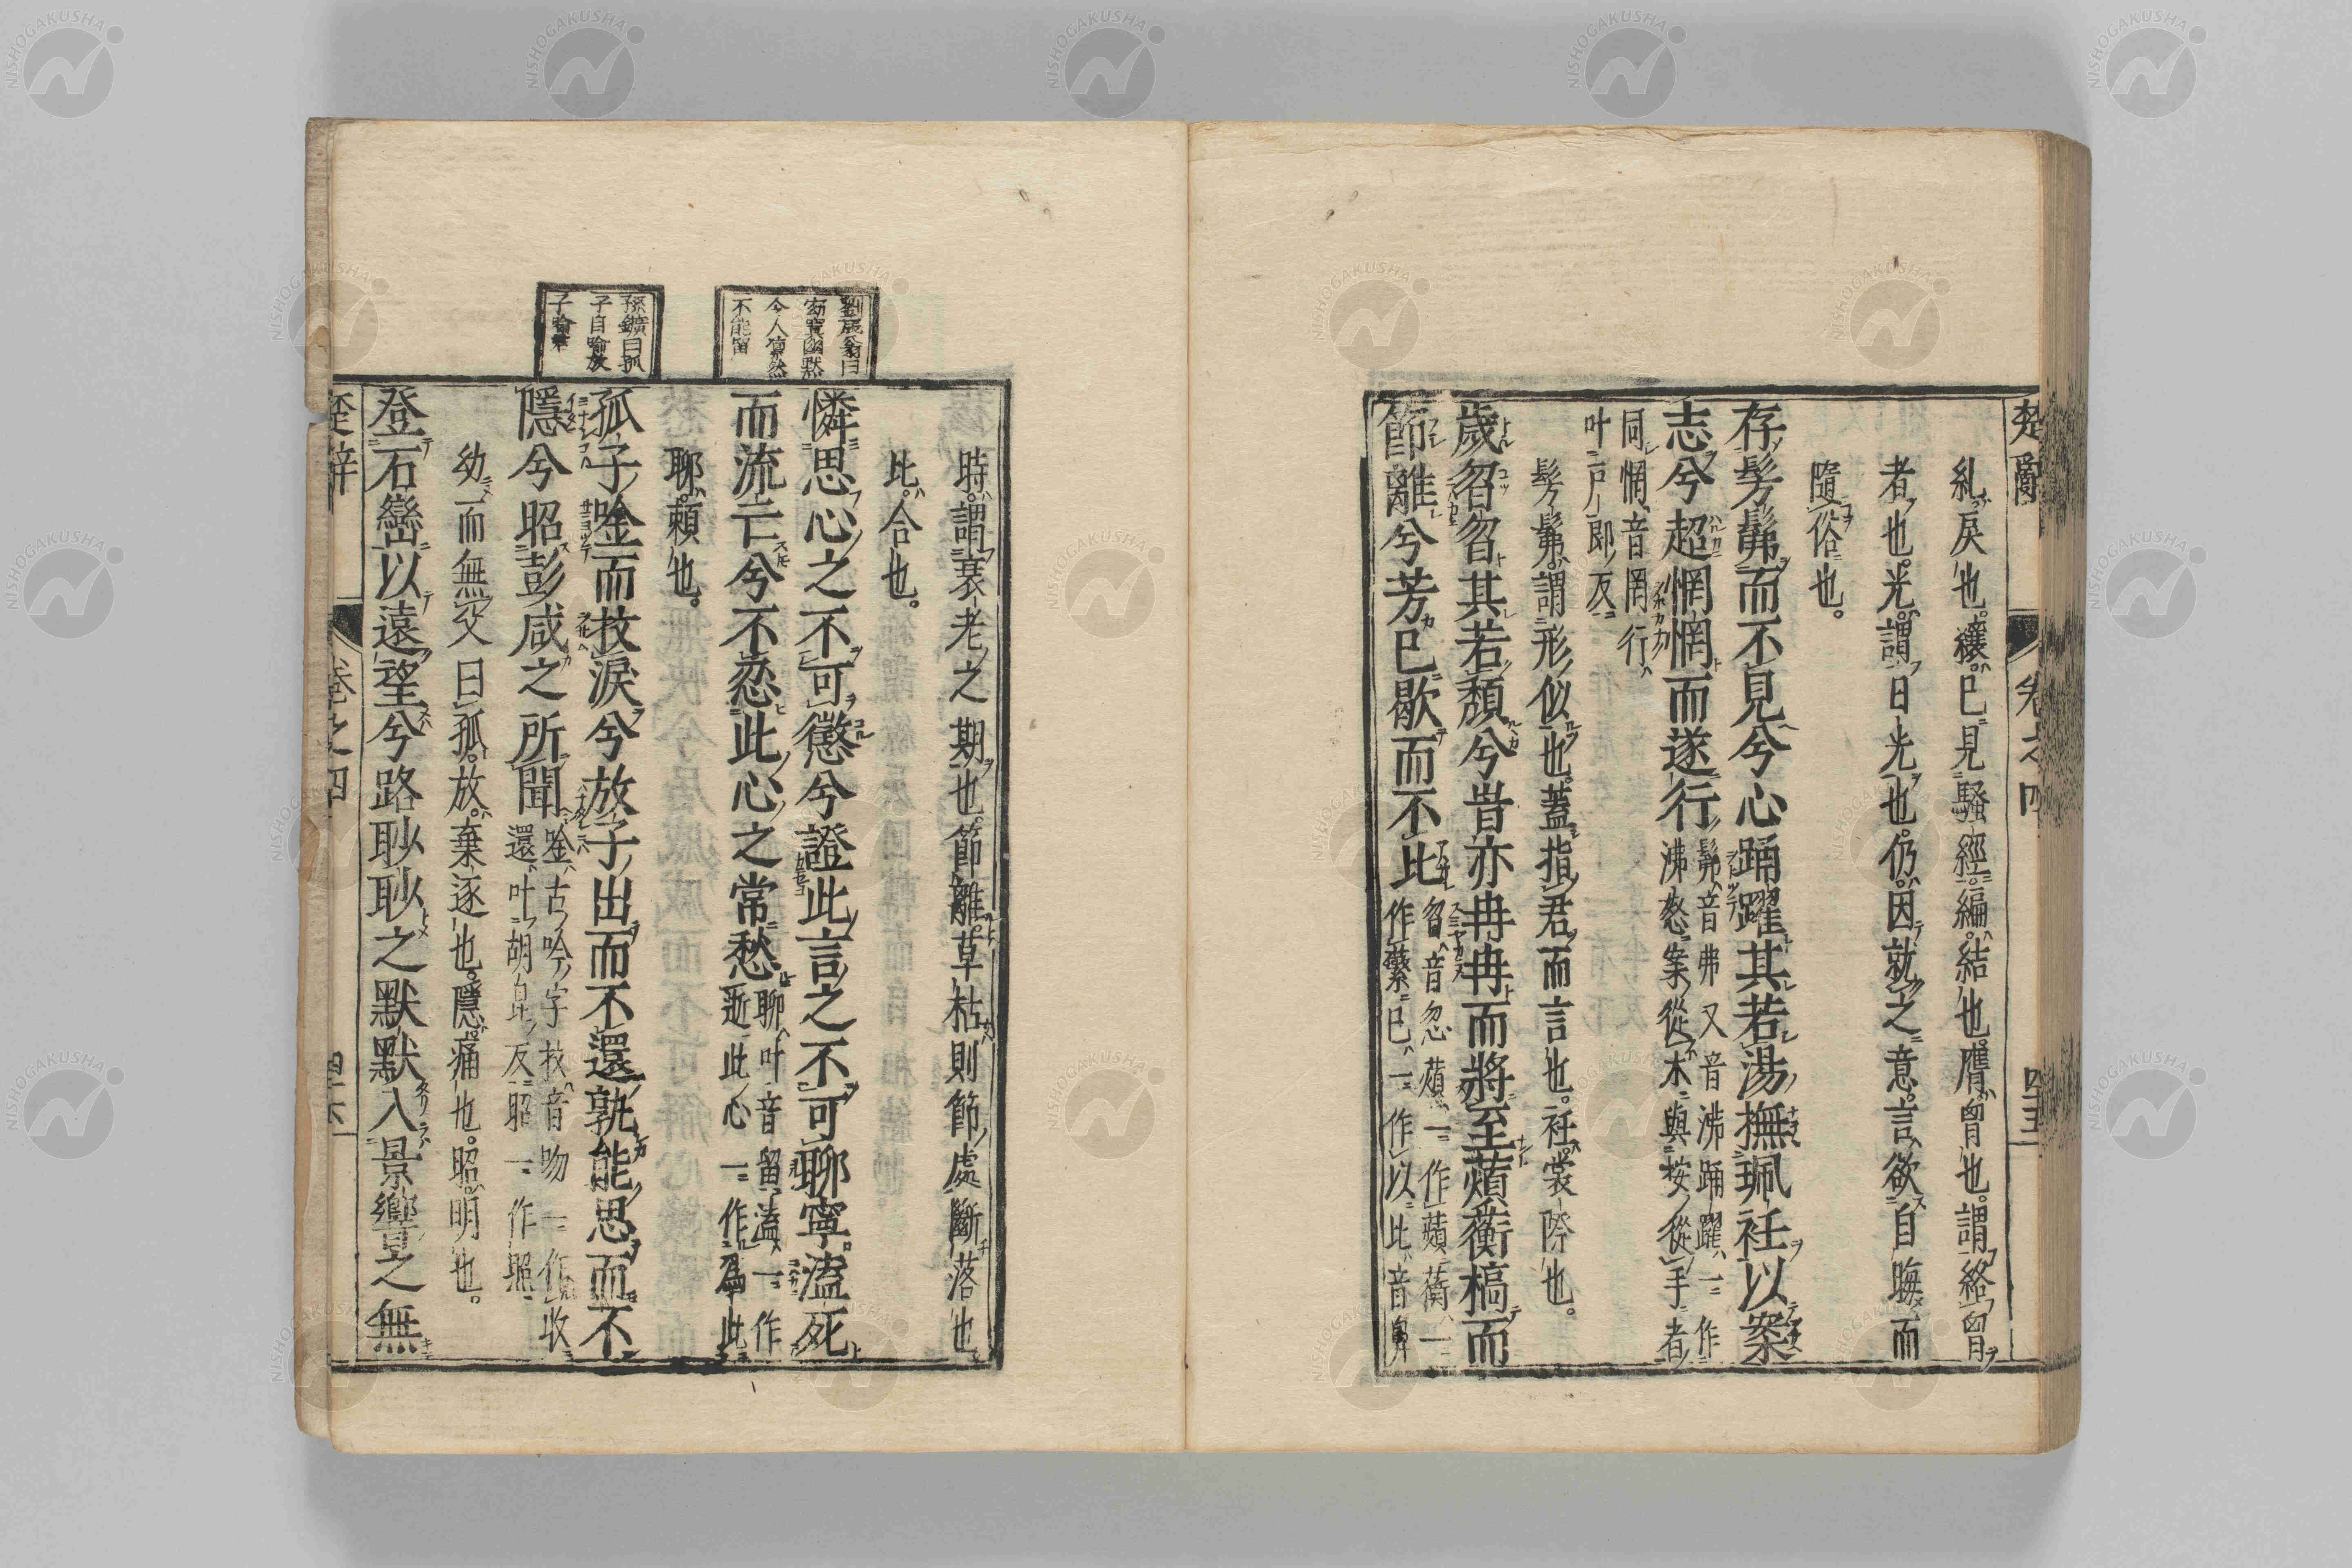 楚辭 卷之四 四十五
糺戾也。纕已見騷經。編結也。膺胷也。謂絡胷
者也。光謂日光也。仍因就之意。言欲自晦而
隨俗也。
存髣髴而不見兮心踊躍其若湯撫珮衽以案
志兮超惘惘而遂行髴音弗又音沸踊躍一作
沸愁案從木與按從手者
同惘音罔行
叶戸郎反
髣髴謂形似也。蓋指君而言也。衽裳際也。
歲曶曶其若頽兮旹亦冉冉而將至薠蘅槁而
節離兮芳已歇而不比曶音忽薠一作蘋蘅一
作蘩已一作以比音鼻
時謂衰老之期也。節離草枯則節處斷落也
比合也。
劉辰翁曰
窈窕幽默
今人凛然
不能留
憐思心之不可懲兮證此言之不可聊寧溘死
而流亡兮不忍此心之常愁聊叶音留溘一作
逝此心一作爲此
聊頼也。
孫鑛曰孤
子自喻放
子喻
孤子唫而抆淚兮放子出而不還孰能思而不
隱兮昭彭咸之所聞唫古吟字抆音吻一作收
還叶胡昆反昭一作照
幼而無父曰孤。放棄逐也。隱痛也。昭明也。
登石巒以遠望兮路眇眇之默默入景響之無
楚辭 卷之四 四十六